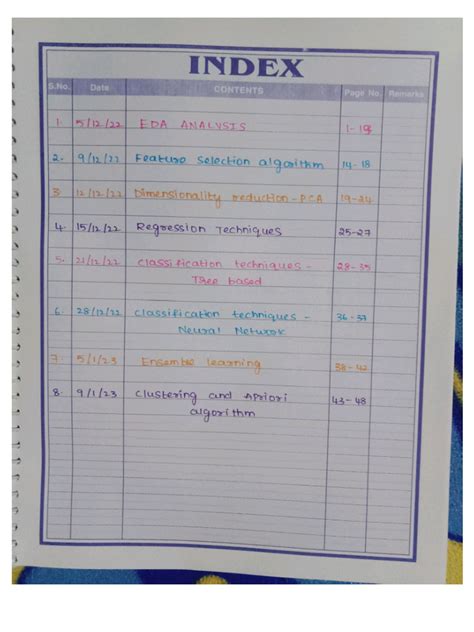 INDEX
S.No. Date CONTENTS Page No. Remarks
1. 5/12/22 EDA ANALYSIS 1-13
2. 9/12/22 Feature Selection algorithm 14-18
3. 12/12/22 Dimensionality reduction-PCA 19-24
4. 15/12/22 Regression Techniques 25-27
5. 21/12/22 Classification techniques - 28-35
Tree based
6. 28/12/22 Classification techniques - 36-37
Neural Network
7. 5/1/23 Ensemble learning 38-42
8. 9/1/23 Clustering and Apriori 43-48
algorithm